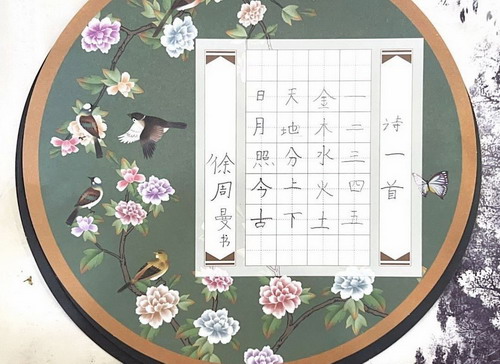 诗一首
一二三四五
金木水火土
天地分上下
日月照今古
徐周曼书